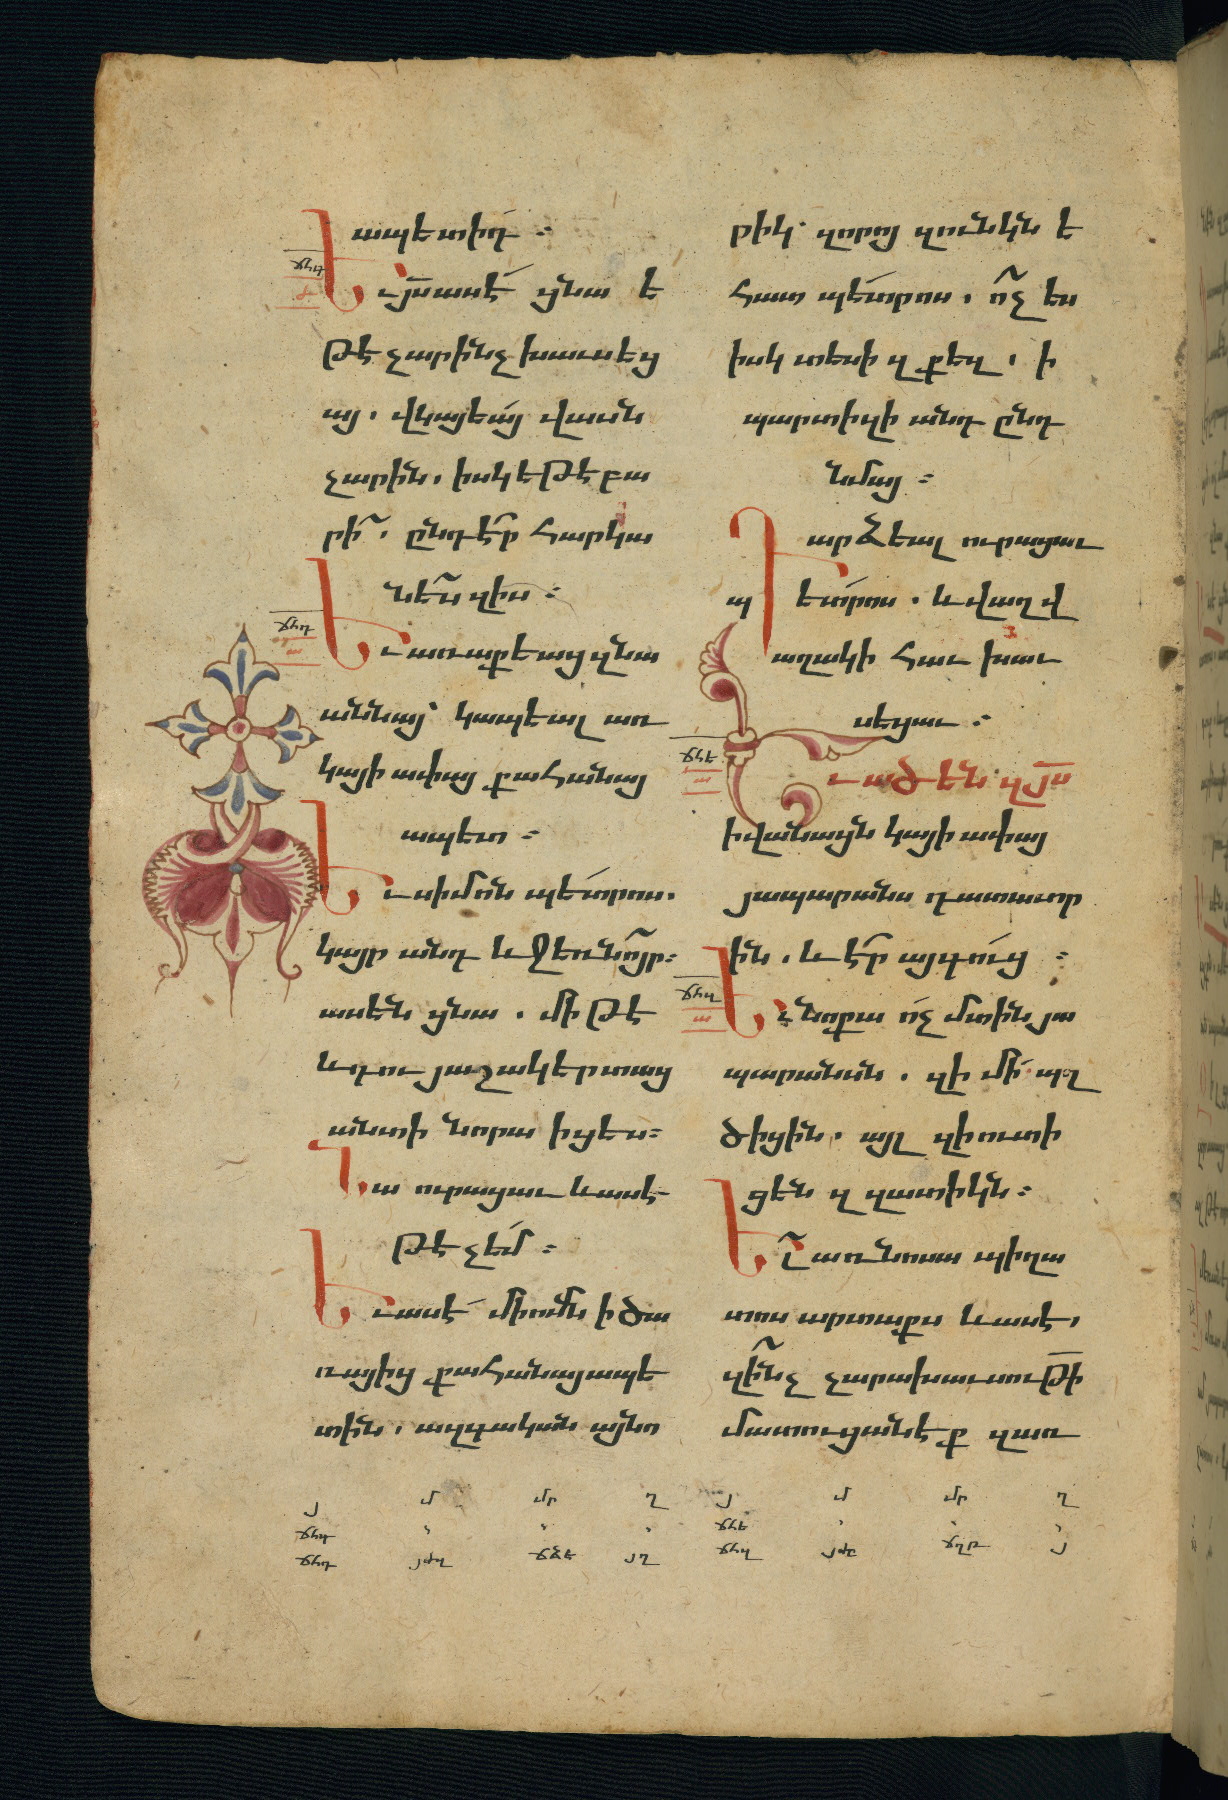 ապետիդ ։
Եւ յ̅ս̅ ասէ՛ ցնա ե
թէ չար ինչ խաւսեց
այ, վկայեա՛յ վասն
չարին, իսկ եթէ բա
րի՞, ընդէ՞ր հարկա
նե՞ս զիս ։
Եւ առաքեաց զնա
աննայ՝ կապեալ առ
կայիափայ քահանայ
ապետ ։
Եւ սիմոն պետրոս.
կայր անդ և ջեռնոյր։
ասեն ցնա . մի թէ
և դու յաշակերտաց
անտի նորա իցես։
Նա ուրացաւ և ասէ
թէ չեմ ։
Եւ ասէ մի ոմն ի ծա
ռայից քահանայապե
տին, ազգական այնո
րիկ՝ զորոյ զունկն է
հատ պետրոս, ո՞չ ես
իսկ տեսի զքեզ, ի
պարտիզի անդ ընդ
նմայ ։
Դարձեալ ուրացաւ
պետրոս. և վաղվ
աղակի հաւ խաւ
սեցաւ ։
Եւ ածեն զյ̅ս̅
ի վանացն կայիափայ
յապարանս դատաւոր
ին, և էր այգուց ։
Եւ նոքա ոչ մտին յա
պարանսն, զի մի պղ
ծիցին, այլ զի ուտի
ցեն զզատիկն։
Ել առ նոսա պիղա
տոս արտաքս և ասէ,
զի՞նչ չարախաւսութի̅
մատուցանէք զառ